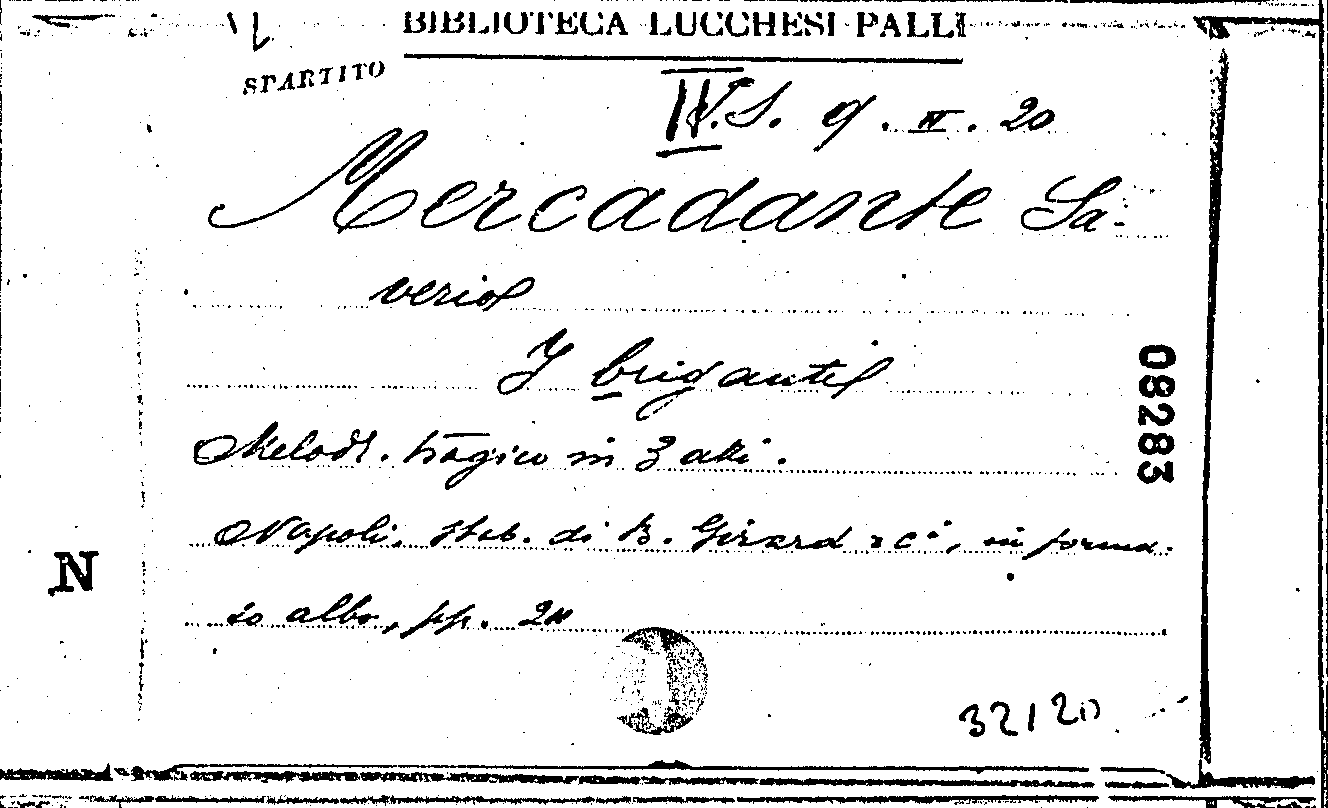 BIBLIOTECA LUCCHESI PALLI
SPARTITO
IV.S. 9. II. 20
Mercadante Sa-
verio
I briganti
Melodr. tragico in 3 atti.
08283
Napoli, Stab. di B. Girard e C.i, in forma-
N
to albo, pp.
32120